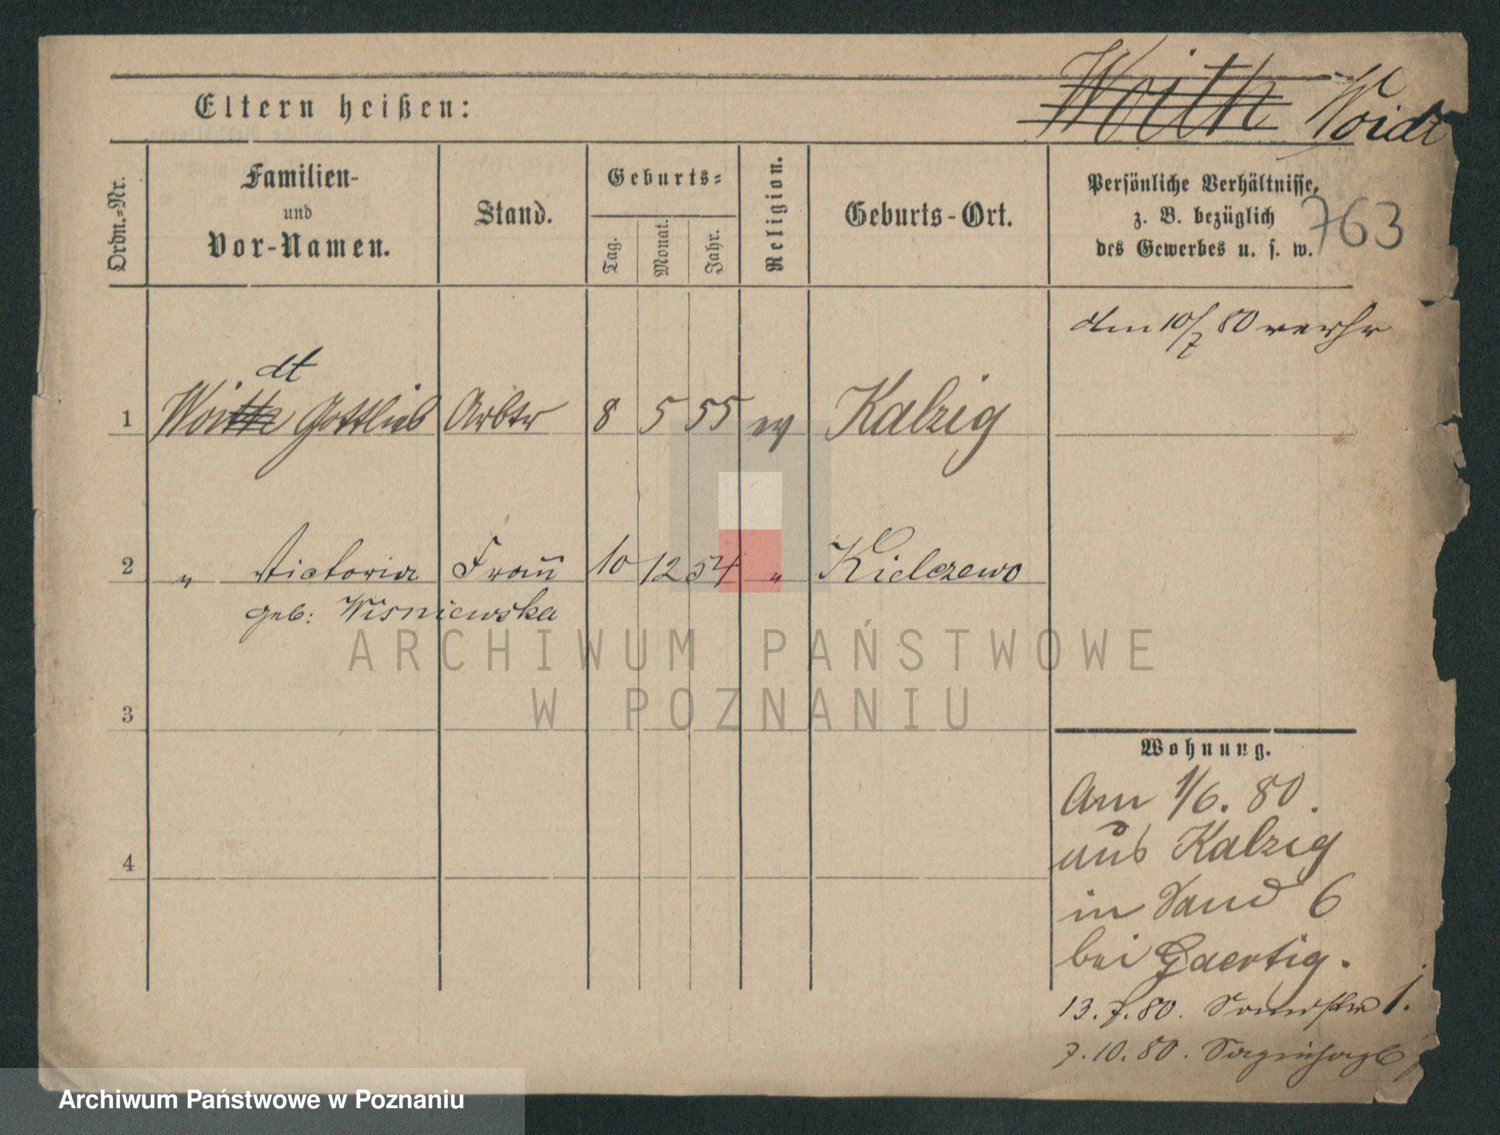 Woith Voidt
Eltern heißen:
Ordn.-Nr.
Familien-
und
Vor-Namen.
Stand.
Geburts-
Tag.
Monat.
Jahr.
Religion.
Geburts-Ort.
Persönliche Verhältnisse,
z. B. bezüglich
des Gewerbes u. s. w.
763
den 10/7 80 verhr
dt
1 Woith Gottlieb Arbtr 8 5 55 ev Kalzig
2 " Victoria Frau 10 12 54 " Kielczewo
geb: Wisniewska
ARCHIWUM PAŃSTWOWE
W POZNANIU
3
4
Wohnung.
Am 1/6. 80.
aus Kalzig
in Sand 6
bei Gaertig.
13.7.80. 1.
7.10.80.
Archiwum Państwowe w Poznaniu